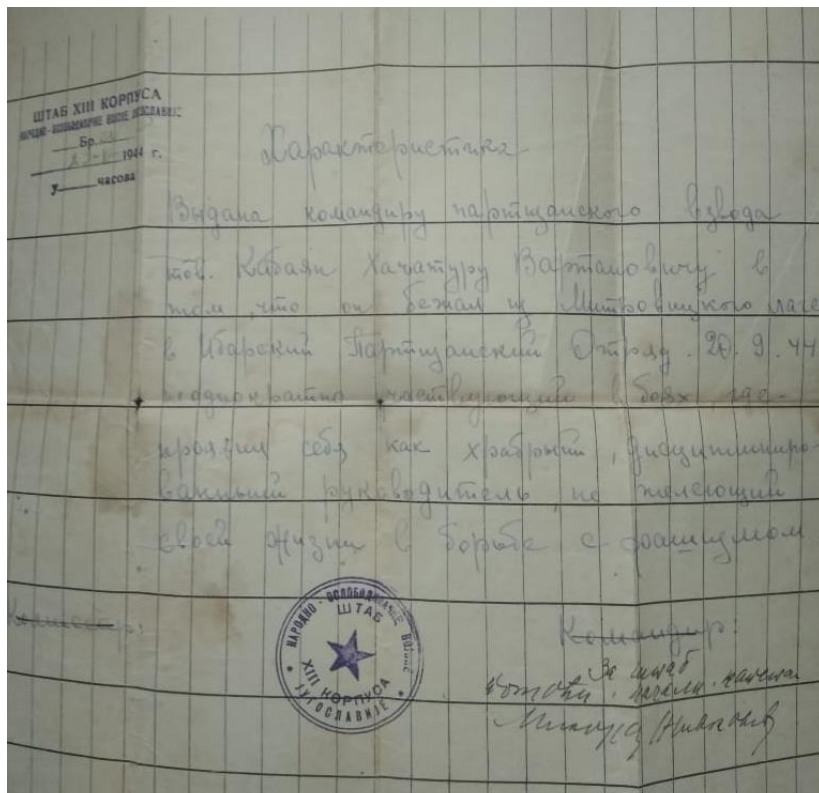 ШТАБ XIII КОРПУСА
НАРОДНО-ОСЛОБОДИЛАЧКЕ ВОЈСКЕ ЈУГОСЛАВИЈЕ
Бр.
1944 г.
У часова
Характеристика
Выдана командиру партизанского взвода
тов. Кабаян Хачатуру Вартановичу в
том, что он бежал из Митровицкого лаге
в Ибарский Партизанский Отряд. 20.9.44
неоднократно участвующий в боях, где-
проявил себя как храбрый, дисциплиниро-
ванный руководитель, не жалеющий
своей жизни в борьбе с фашизмом
Комиссар:
Командир:
НАРОДНО-ОСЛОБОДИЛАЧКЕ ВОЈСКЕ ЈУГОСЛАВИЈЕ
ШТАБ
XIII КОРПУСА
За штаб